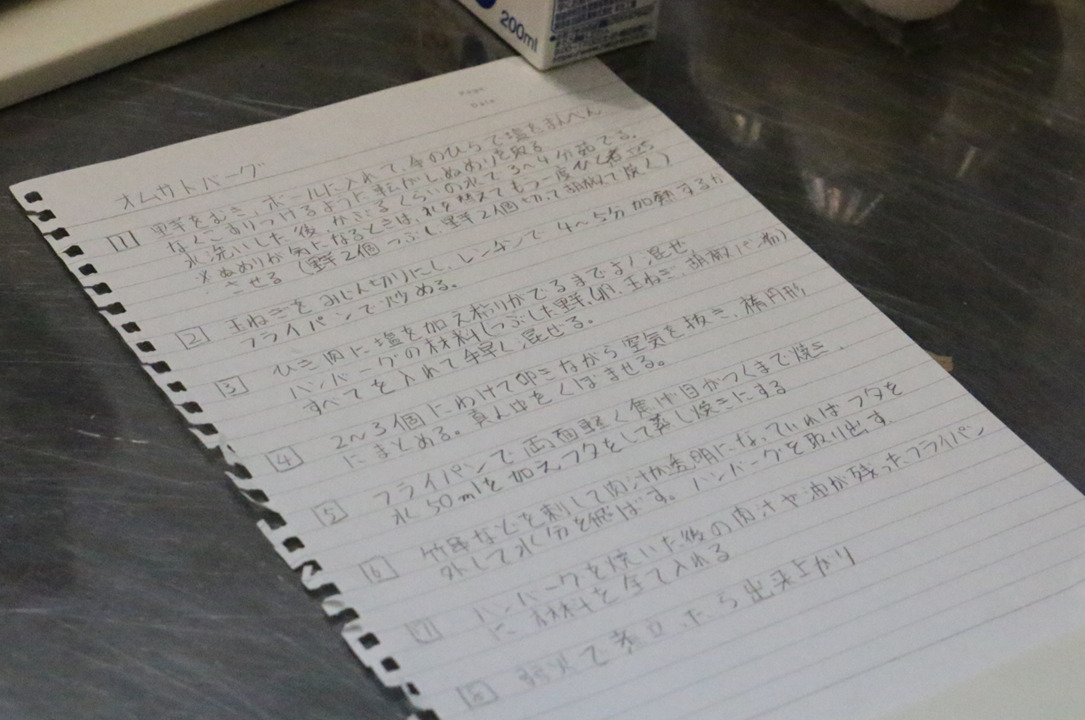 200ml
Page
Date
オムサトバーグ
1 里芋をむき、ボールに入れて、手のひらで塩をまんべん
なくこすりつけるように転がしぬめりを取る
水洗いした後、かぶるくらいの水で3〜4分茹でる。
※ぬめりが気になるときは、水を替えてもう一度ひと煮立ち
させる (里芋2個つぶし、里芋2個切って胡麻で焼く)
2 玉ねぎをみじん切りにし、レンチンで4〜5分加熱するか
フライパンで炒める。
3 ひき肉に塩を加え粘りがでるまでよく混ぜ
ハンバーグの材料(つぶした里芋、卵、玉ねぎ、胡椒、パン粉)
すべてを入れて手早く混ぜる。
4 2〜3個にわけて叩きながら空気を抜き、楕円形
にまとめる。真ん中をくぼませる。
5 フライパンで両面軽く焦げ目がつくまで焼き、
水50mlを加え、フタをして蒸し焼きにする
6 竹串などを刺して肉汁が透明になっていればフタを
外して水分を飛ばす。ハンバーグを取り出す
7 ハンバーグを焼いた後の肉汁や油が残ったフライパン
に材料を全て入れる
8 弱火で煮立ったら出来上がり